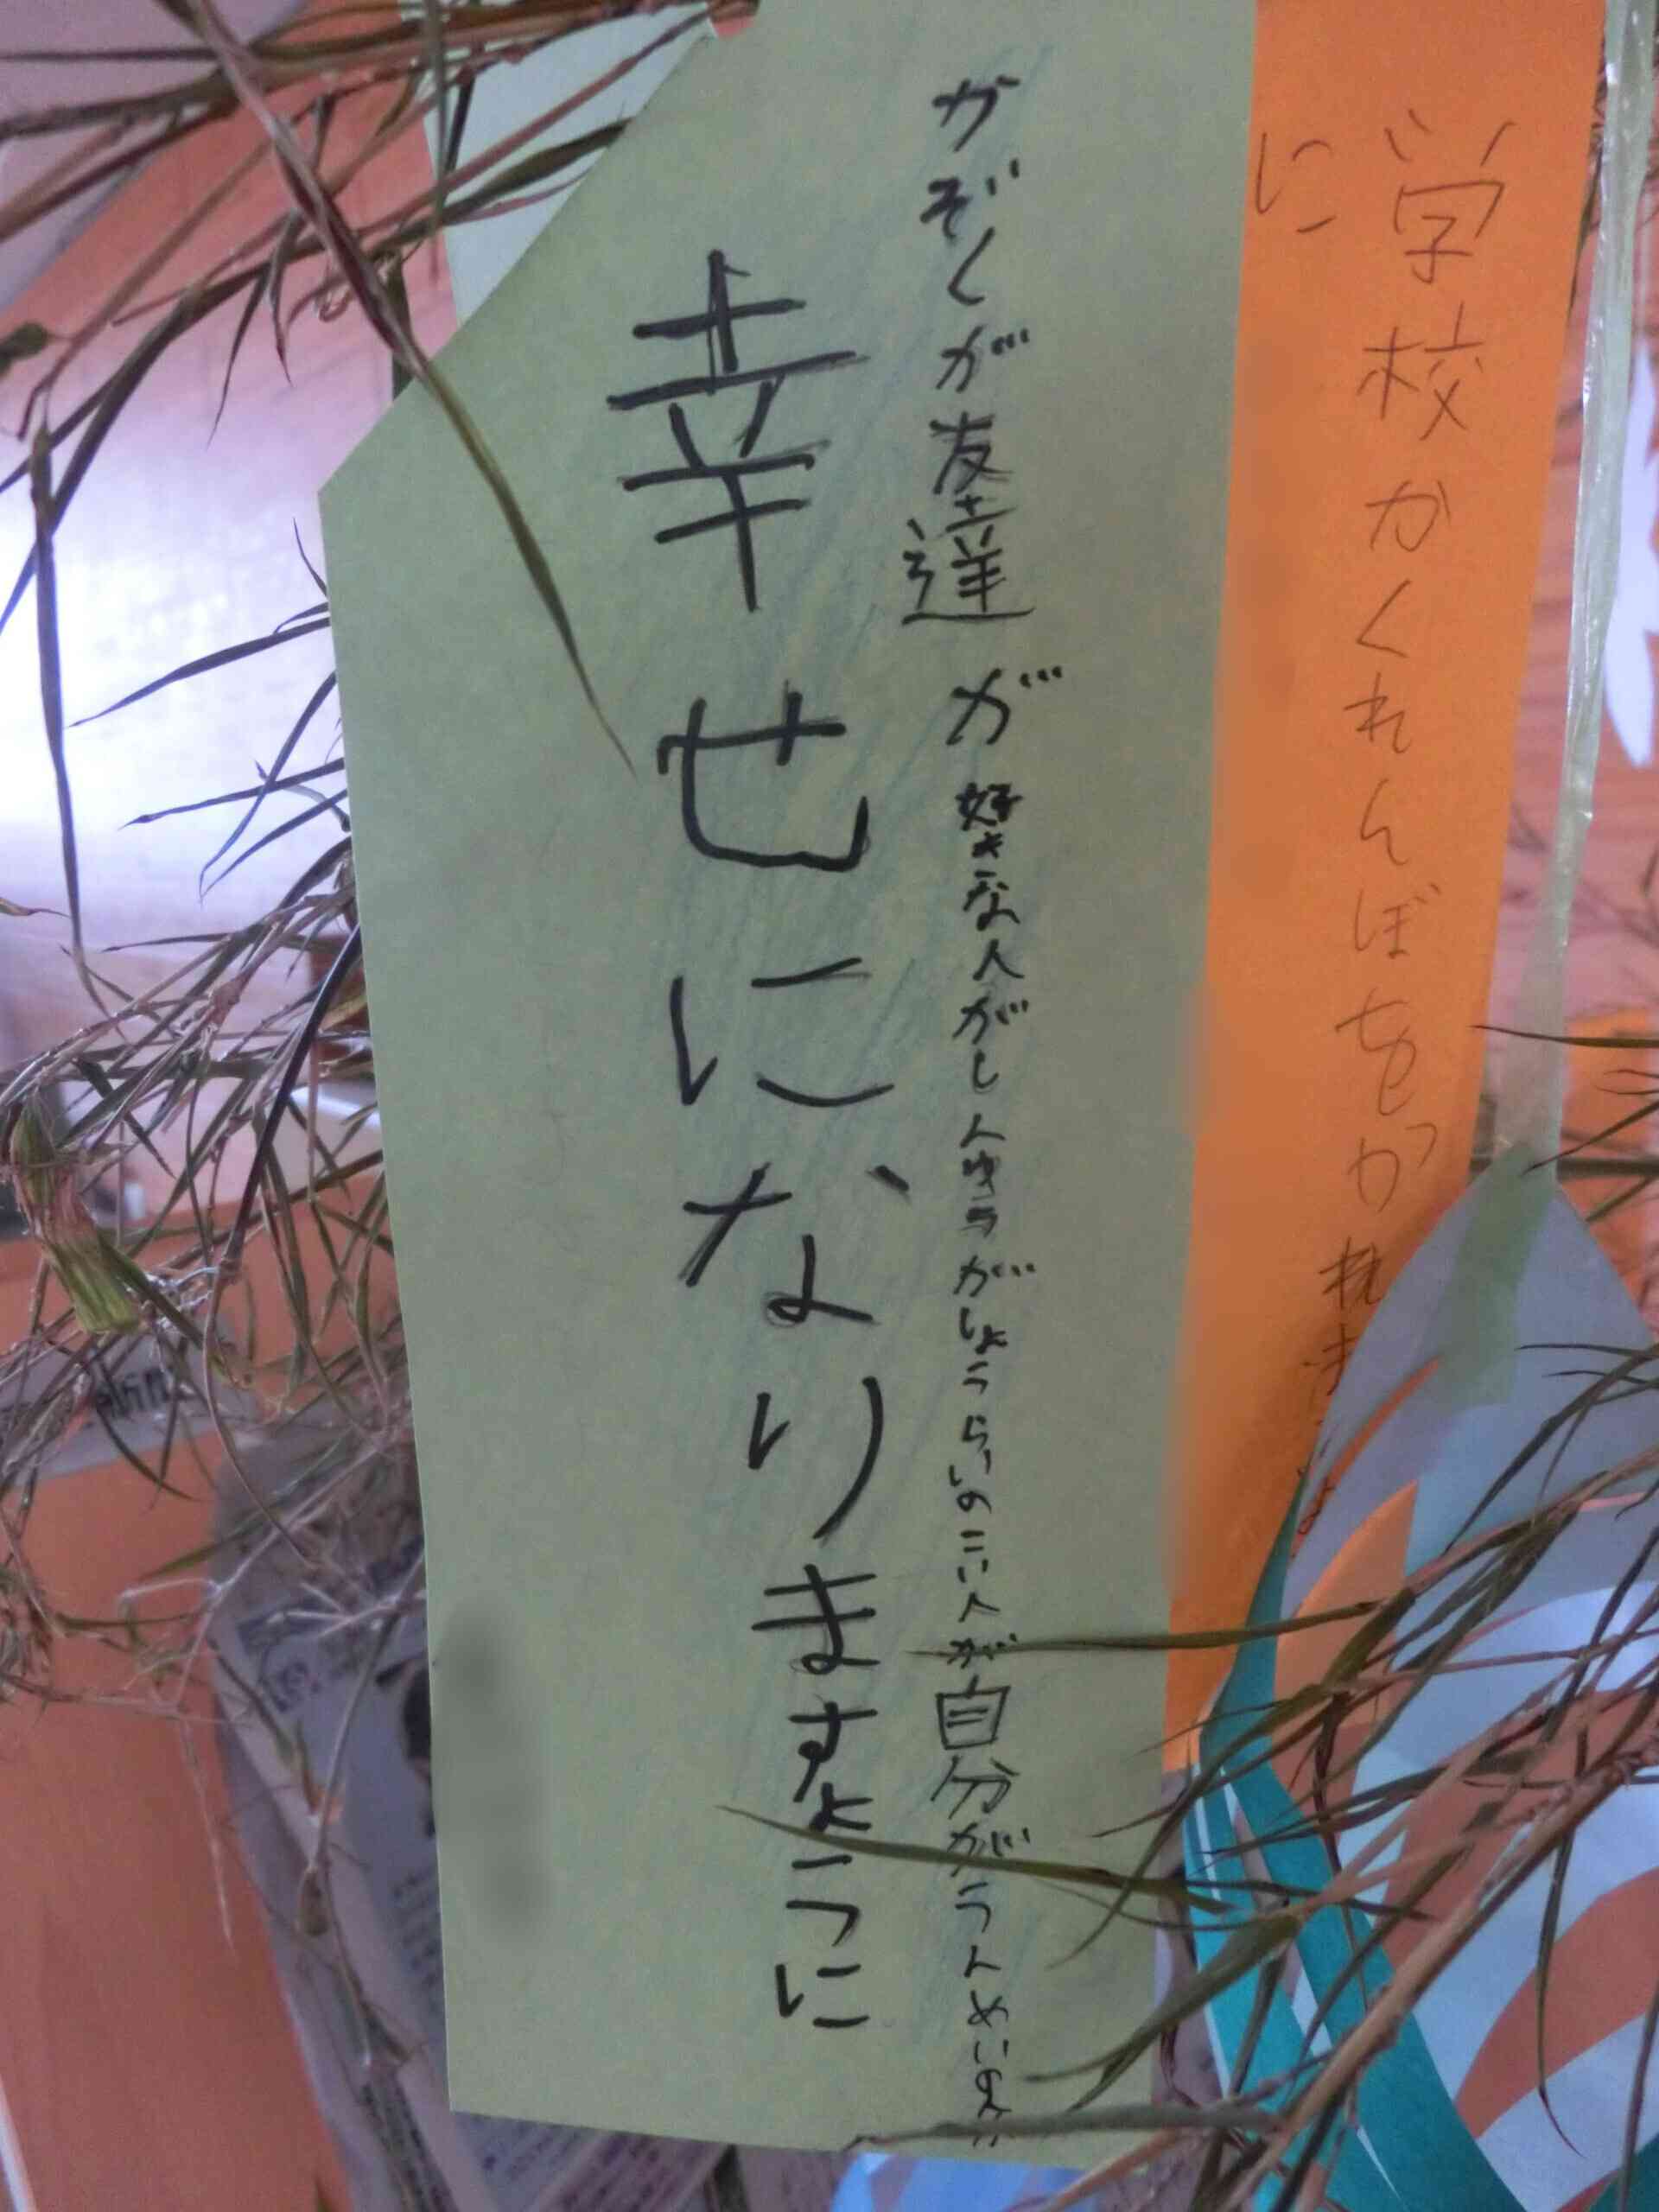 学校かくれんぼをかれますよ
に
かぞくが友達が好きな人がしんゆうがしょうらいのこい人が自分がうんめいの人が
幸せになりますように